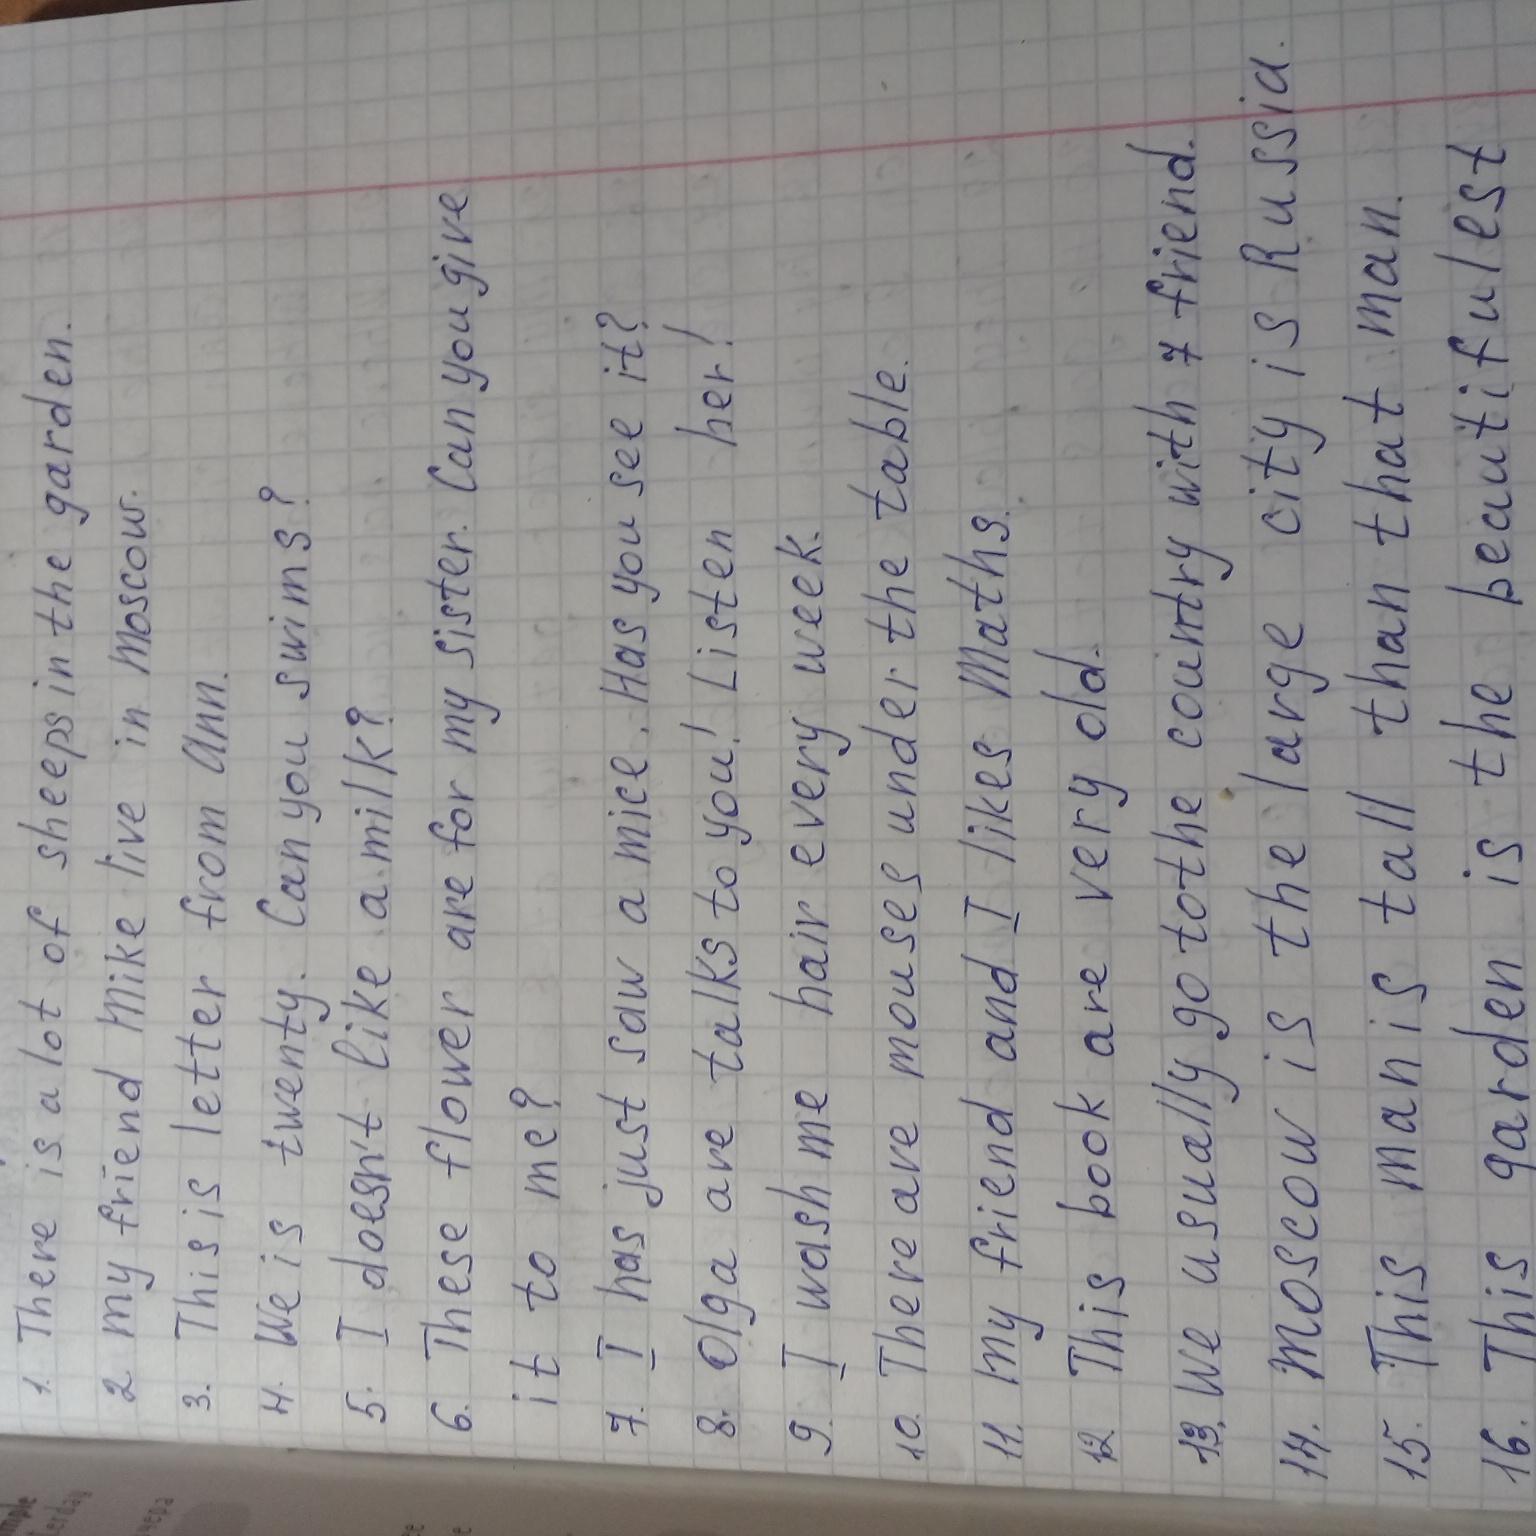 1. There is a lot of sheeps in the garden.
2 my friend Mike live in Moscow.
3. This is letter from Ann.
4. We is twenty. Can you swims?
5. I doesn't like a milk?
6. These flower are for my sister. Can you give
it to me?
7. I has just saw a mice. Has you see it?
8. Olga are talks to you! Listen her!
9. I wash me hair every week.
10. There are mouses under the table.
11. My friend and I likes Maths.
12 This book are very old.
13. We usually go to the country with 7 friend.
14. Moscow is the large city is Russia.
15. This man is tall than that man.
16. This garden is the beautifulest